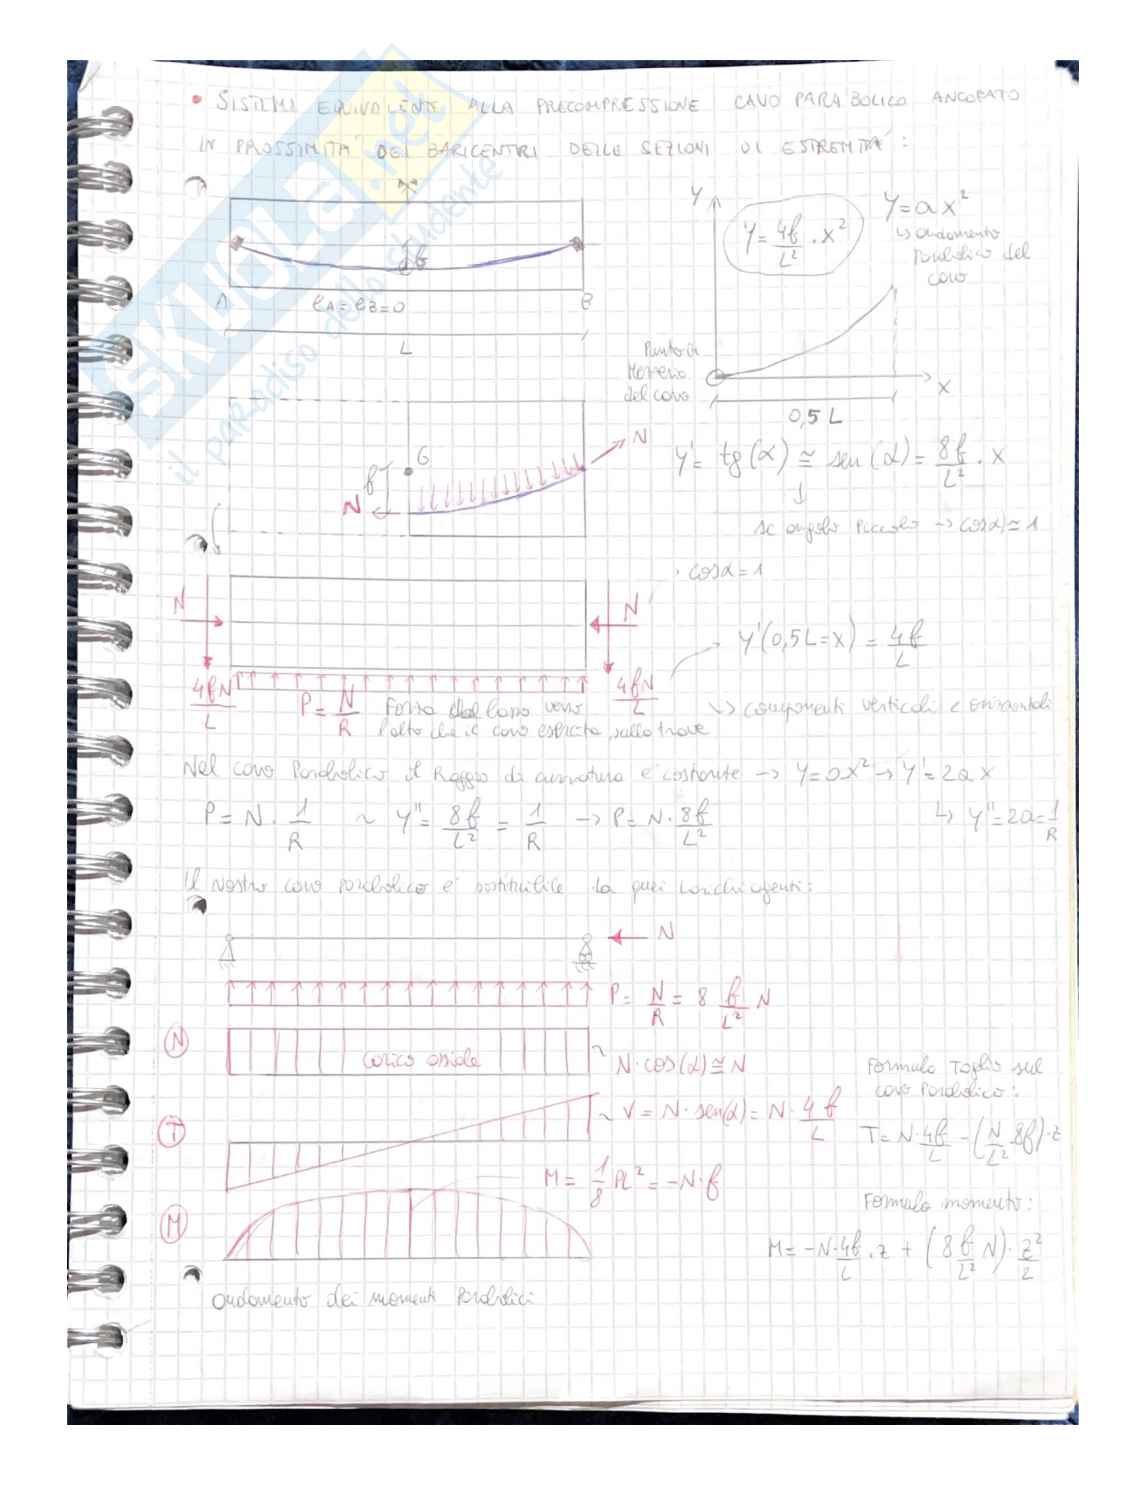 • SISTEMI EQUIVALENTI ALLA PRECOMPRESSIONE CAVO PARABOLICO ANCORATO
IN PROSSIMITA' DEI BARICENTRI DELLE SEZIONI DI ESTREMITA':
SKUOLA.net
il paradiso dello studente
f
A
eA = eB = 0
B
L
Y
Y = 4f/L² · x²
Y = ax²
↳ andamento
parabolico del
cavo
Punto di
Mezzeria
del cavo
x
0,5 L
G
f
N
N
Y' = tg(α) ≅ sen(α) = 8f/L² · x
↓
se angolo piccolo → cosα ≃ 1
· cosα = 1
N
N
Y'(0,5L=x) = 4f/L
4fN/L
P = N/R
Forza dal cavo verso
l'alto che il cavo esercita sulla trave
4fN/L
↳ componenti verticali e orizzontali
Nel cavo Parabolico il Raggio di curvatura e' costante → Y=ax² → Y'=2ax
P = N · 1/R ~ Y'' = 8f/L² = 1/R → P = N · 8f/L²
↳ Y''=2a=1/R
Il Nostro cavo parabolico e' sostituibile da quei carichi agenti:
N
P = N/R = 8 f/L² N
N
carico assiale
N·cos(α) ≅ N
T
~ V = N·sen(α) = N · 4f/L
Formula Taglio sul
cavo Parabolico:
T = N·4f/L - (N/L² 8f)·z
M = 1/8 PL² = -N·f
M
Formula momento:
M = -N·4f/L · z + (8 f/L² N) · z²/2
andamento dei momenti Parabolici